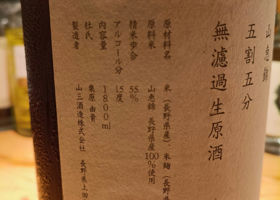 山恵錦
五割五分
無濾過生原酒
原材料名 米(長野県産)、米麹(長野県
原料米 山恵錦 長野県産100%使用
精米歩合 55%
アルコール分 15度
内容量 1800ml
杜氏 栗原由貴
製造者 山三酒造株式会社 長野県上田